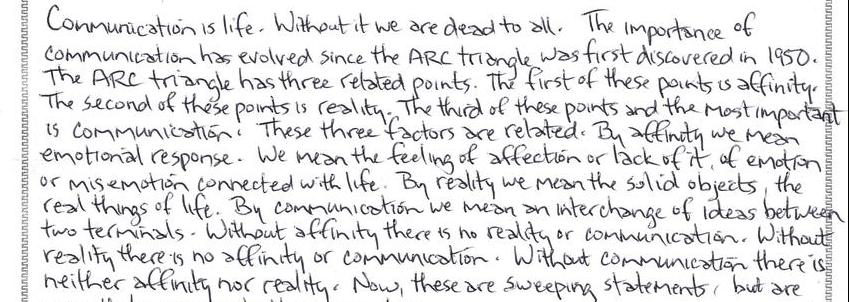 Communication is life. Without it we are dead to all. The importance of
communication has evolved since the ARC triangle was first discovered in 1950.
The ARC triangle has three related points. The first of these points is affinity.
The second of these points is reality. The third of these points and the most important
is communication. These three factors are related. By affinity we mean
emotional response. We mean the feeling of affection or lack of it, of emotion
or misemotion connected with life. By reality we mean the solid objects, the
real things of life. By communication we mean an interchange of ideas between
two terminals. Without affinity there is no reality or communication. Without
reality there is no affinity or communication. Without communication there is
neither affinity nor reality. Now, these are sweeping statements, but are